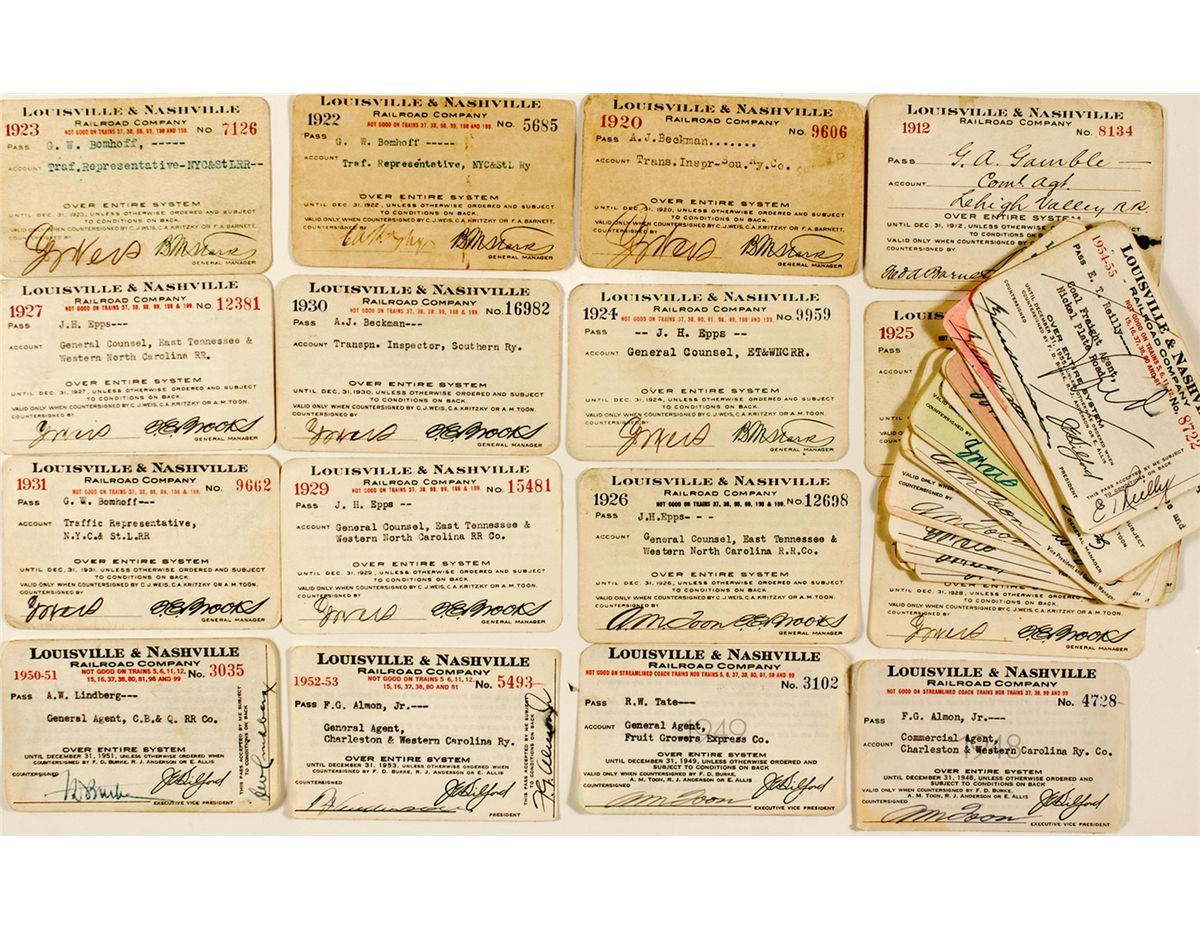 LOUISVILLE & NASHVILLE
RAILROAD COMPANY
1923 NOT GOOD ON TRAINS 37, 38, 98, 99, 198 AND 199. No. 7126
PASS G. W. Bomhoff, -----
ACCOUNT Traf.Representative-NYC&StLRR--
OVER ENTIRE SYSTEM
UNTIL DEC. 31, 1923, UNLESS OTHERWISE ORDERED AND SUBJECT
TO CONDITIONS ON BACK.
VALID ONLY WHEN COUNTERSIGNED BY C.J. WEIS, C.A. KRITZKY OR F.A. BARNETT.
COUNTERSIGNED BY
GENERAL MANAGER
LOUISVILLE & NASHVILLE
RAILROAD COMPANY
1922 NOT GOOD ON TRAINS 37, 38, 98, 99, 198 AND 199. No. 5685
PASS G. W. Bomhoff -----
ACCOUNT Traf. Representative, NYC&StL Ry
OVER ENTIRE SYSTEM
UNTIL DEC. 31, 1922, UNLESS OTHERWISE ORDERED AND SUBJECT
TO CONDITIONS ON BACK.
VALID ONLY WHEN COUNTERSIGNED BY C.J. WEIS, C.A. KRITZKY OR F.A. BARNETT.
COUNTERSIGNED BY
GENERAL MANAGER
LOUISVILLE & NASHVILLE
RAILROAD COMPANY
1920 No. 9606
PASS A.J.Beckman.......
ACCOUNT Trans.Inspr-Sou.Ry.Co.
OVER ENTIRE SYSTEM
UNTIL DEC. 31, 1920, UNLESS OTHERWISE ORDERED AND SUBJECT
TO CONDITIONS ON BACK.
VALID ONLY WHEN COUNTERSIGNED BY C.J. WEIS, C.A. KRITZKY OR F.A. BARNETT.
COUNTERSIGNED BY
GENERAL MANAGER
LOUISVILLE & NASHVILLE
RAILROAD COMPANY
1912 No. 8134
PASS G. A. Gamble
ACCOUNT Coml Agt.
Lehigh Valley RR
OVER ENTIRE SYSTEM
UNTIL DEC. 31, 1912, UNLESS OTHERWISE ORDERED
TO CONDITIONS ON
VALID ONLY WHEN COUNTERSIGNED BY
COUNTERSIGNED BY
LOUISVILLE & NASHVILLE
RAILROAD COMPANY
1927 NOT GOOD ON TRAINS 37, 38, 98, 99, 198 & 199. No. 12381
PASS J.H. Epps---
ACCOUNT General Counsel, East Tennessee &
Western North Carolina RR.
OVER ENTIRE SYSTEM
UNTIL DEC. 31, 1927, UNLESS OTHERWISE ORDERED AND SUBJECT
TO CONDITIONS ON BACK.
VALID ONLY WHEN COUNTERSIGNED BY C.J. WEIS, C.A. KRITZKY OR A.M. TOON.
COUNTERSIGNED BY
GENERAL MANAGER
LOUISVILLE & NASHVILLE
RAILROAD COMPANY
1930 No. 16982
PASS A.J. Beckman---
ACCOUNT Transpn. Inspector, Southern Ry.
OVER ENTIRE SYSTEM
UNTIL DEC. 31, 1930, UNLESS OTHERWISE ORDERED AND SUBJECT
TO CONDITIONS ON BACK.
VALID ONLY WHEN COUNTERSIGNED BY C.J. WEIS, C.A. KRITZKY OR A.M. TOON.
COUNTERSIGNED BY
GENERAL MANAGER
LOUISVILLE & NASHVILLE
RAILROAD COMPANY
1924 No. 9959
PASS -- J. H. Epps --
ACCOUNT General Counsel, ET&WNCRR.
OVER ENTIRE SYSTEM
UNTIL DEC. 31, 1924, UNLESS OTHERWISE ORDERED AND SUBJECT
TO CONDITIONS ON BACK.
VALID ONLY WHEN COUNTERSIGNED BY C.J. WEIS, C.A. KRITZKY OR A.M. TOON.
COUNTERSIGNED BY
GENERAL MANAGER
1925
PASS
ACCOUNT
LOUISVILLE & NASHV
RAILROAD COMPANY
1954-55 No. 8722
PASS E. T. Reilly---
Coal Freight Agent,
Nickel Plate Road
OVER ENTIRE SYSTEM
PRESIDENT
THIS PASS ACCEPTED BY ME SUBJECT
LOUISVILLE & NASHVILLE
RAILROAD COMPANY
1931 NOT GOOD ON TRAINS 37, 38, 98, 99, 198 & 199. No. 9662
PASS G. W. Bomhoff---
ACCOUNT Traffic Representative,
N.Y.C.& St.L.RR
OVER ENTIRE SYSTEM
UNTIL DEC. 31, 1931, UNLESS OTHERWISE ORDERED AND SUBJECT
TO CONDITIONS ON BACK.
VALID ONLY WHEN COUNTERSIGNED BY C.J. WEIS, C.A. KRITZKY OR A.M. TOON.
COUNTERSIGNED BY
GENERAL MANAGER
LOUISVILLE & NASHVILLE
RAILROAD COMPANY
1929 NOT GOOD ON TRAINS 37, 38, 98, 99, 198 & 199. No. 15481
PASS J.H. Epps --
ACCOUNT General Counsel, East Tennessee &
Western North Carolina RR Co.
OVER ENTIRE SYSTEM
UNTIL DEC. 31, 1929, UNLESS OTHERWISE ORDERED AND SUBJECT
TO CONDITIONS ON BACK.
VALID ONLY WHEN COUNTERSIGNED BY C.J. WEIS, C.A. KRITZKY OR A.M. TOON.
COUNTERSIGNED BY
GENERAL MANAGER
LOUISVILLE & NASHVILLE
RAILROAD COMPANY
1926 NOT GOOD ON TRAINS 37, 38, 98, 99, 198 & 199. No. 12698
PASS J.H.Epps- - -
ACCOUNT General Counsel, East Tennessee &
Western North Carolina R.R.Co.
OVER ENTIRE SYSTEM
UNTIL DEC. 31, 1926, UNLESS OTHERWISE ORDERED AND SUBJECT
TO CONDITIONS ON BACK.
VALID ONLY WHEN COUNTERSIGNED BY C.J. WEIS, C.A. KRITZKY OR A.M. TOON.
COUNTERSIGNED BY
GENERAL MANAGER
OVER ENTIRE SYSTEM
UNTIL DEC. 31, 1928, UNLESS OTHERWISE ORDERED AND SUBJECT
TO CONDITIONS ON BACK.
VALID ONLY WHEN COUNTERSIGNED BY C.J. WEIS, C.A. KRITZKY OR A.M. TOON.
COUNTERSIGNED BY
GENERAL MANAGER
LOUISVILLE & NASHVILLE
RAILROAD COMPANY
1950-51 NOT GOOD ON TRAINS 5, 6, 11, 12, No. 3035
15, 16, 37, 38, 80, 81, 98 AND 99
PASS A.W. Lindberg---
General Agent, C.B.& Q. RR Co.
OVER ENTIRE SYSTEM
UNTIL DECEMBER 31, 1951, UNLESS OTHERWISE ORDERED WHEN
COUNTERSIGNED BY F. D. BURKE, R. J. ANDERSON OR E. ALLIS
COUNTERSIGNED
EXECUTIVE VICE PRESIDENT
THIS PASS ACCEPTED BY ME SUBJECT
TO CONDITIONS ON BACK
LOUISVILLE & NASHVILLE
RAILROAD COMPANY
1952-53 NOT GOOD ON TRAINS 5, 6, 11, 12, No. 5493
15, 16, 37, 38, 80 AND 81
PASS F.G. Almon, Jr.---
General Agent,
Charleston & Western Carolina Ry.
OVER ENTIRE SYSTEM
UNTIL DECEMBER 31, 1953, UNLESS OTHERWISE ORDERED WHEN
COUNTERSIGNED BY F. D. BURKE, R. J. ANDERSON OR E. ALLIS
COUNTERSIGNED
PRESIDENT
THIS PASS ACCEPTED BY ME SUBJECT
TO CONDITIONS ON BACK
LOUISVILLE & NASHVILLE
RAILROAD COMPANY
NOT GOOD ON STREAMLINED COACH TRAINS NOR TRAINS 5, 6, 37, 38, 98 AND 99
No. 3102
PASS R.W. Tate---
ACCOUNT General Agent,
Fruit Growers Express Co.
1949
OVER ENTIRE SYSTEM
UNTIL DECEMBER 31, 1949, UNLESS OTHERWISE ORDERED
AND SUBJECT TO CONDITIONS ON BACK
VALID ONLY WHEN COUNTERSIGNED BY F. D. BURKE,
A. M. TOON, R. J. ANDERSON OR E. ALLIS
COUNTERSIGNED
EXECUTIVE VICE PRESIDENT
LOUISVILLE & NASHVILLE
RAILROAD COMPANY
NOT GOOD ON STREAMLINED COACH TRAINS NOR TRAINS 37, 38, 98 AND 99
No. 4728
PASS F.G. Almon, Jr.---
ACCOUNT Commercial Agent,
Charleston & Western Carolina Ry. Co.
1948
OVER ENTIRE SYSTEM
UNTIL DECEMBER 31, 1948, UNLESS OTHERWISE ORDERED
AND SUBJECT TO CONDITIONS ON BACK
VALID ONLY WHEN COUNTERSIGNED BY F. D. BURKE,
A. M. TOON, R. J. ANDERSON OR E. ALLIS
COUNTERSIGNED
EXECUTIVE VICE PRESIDENT